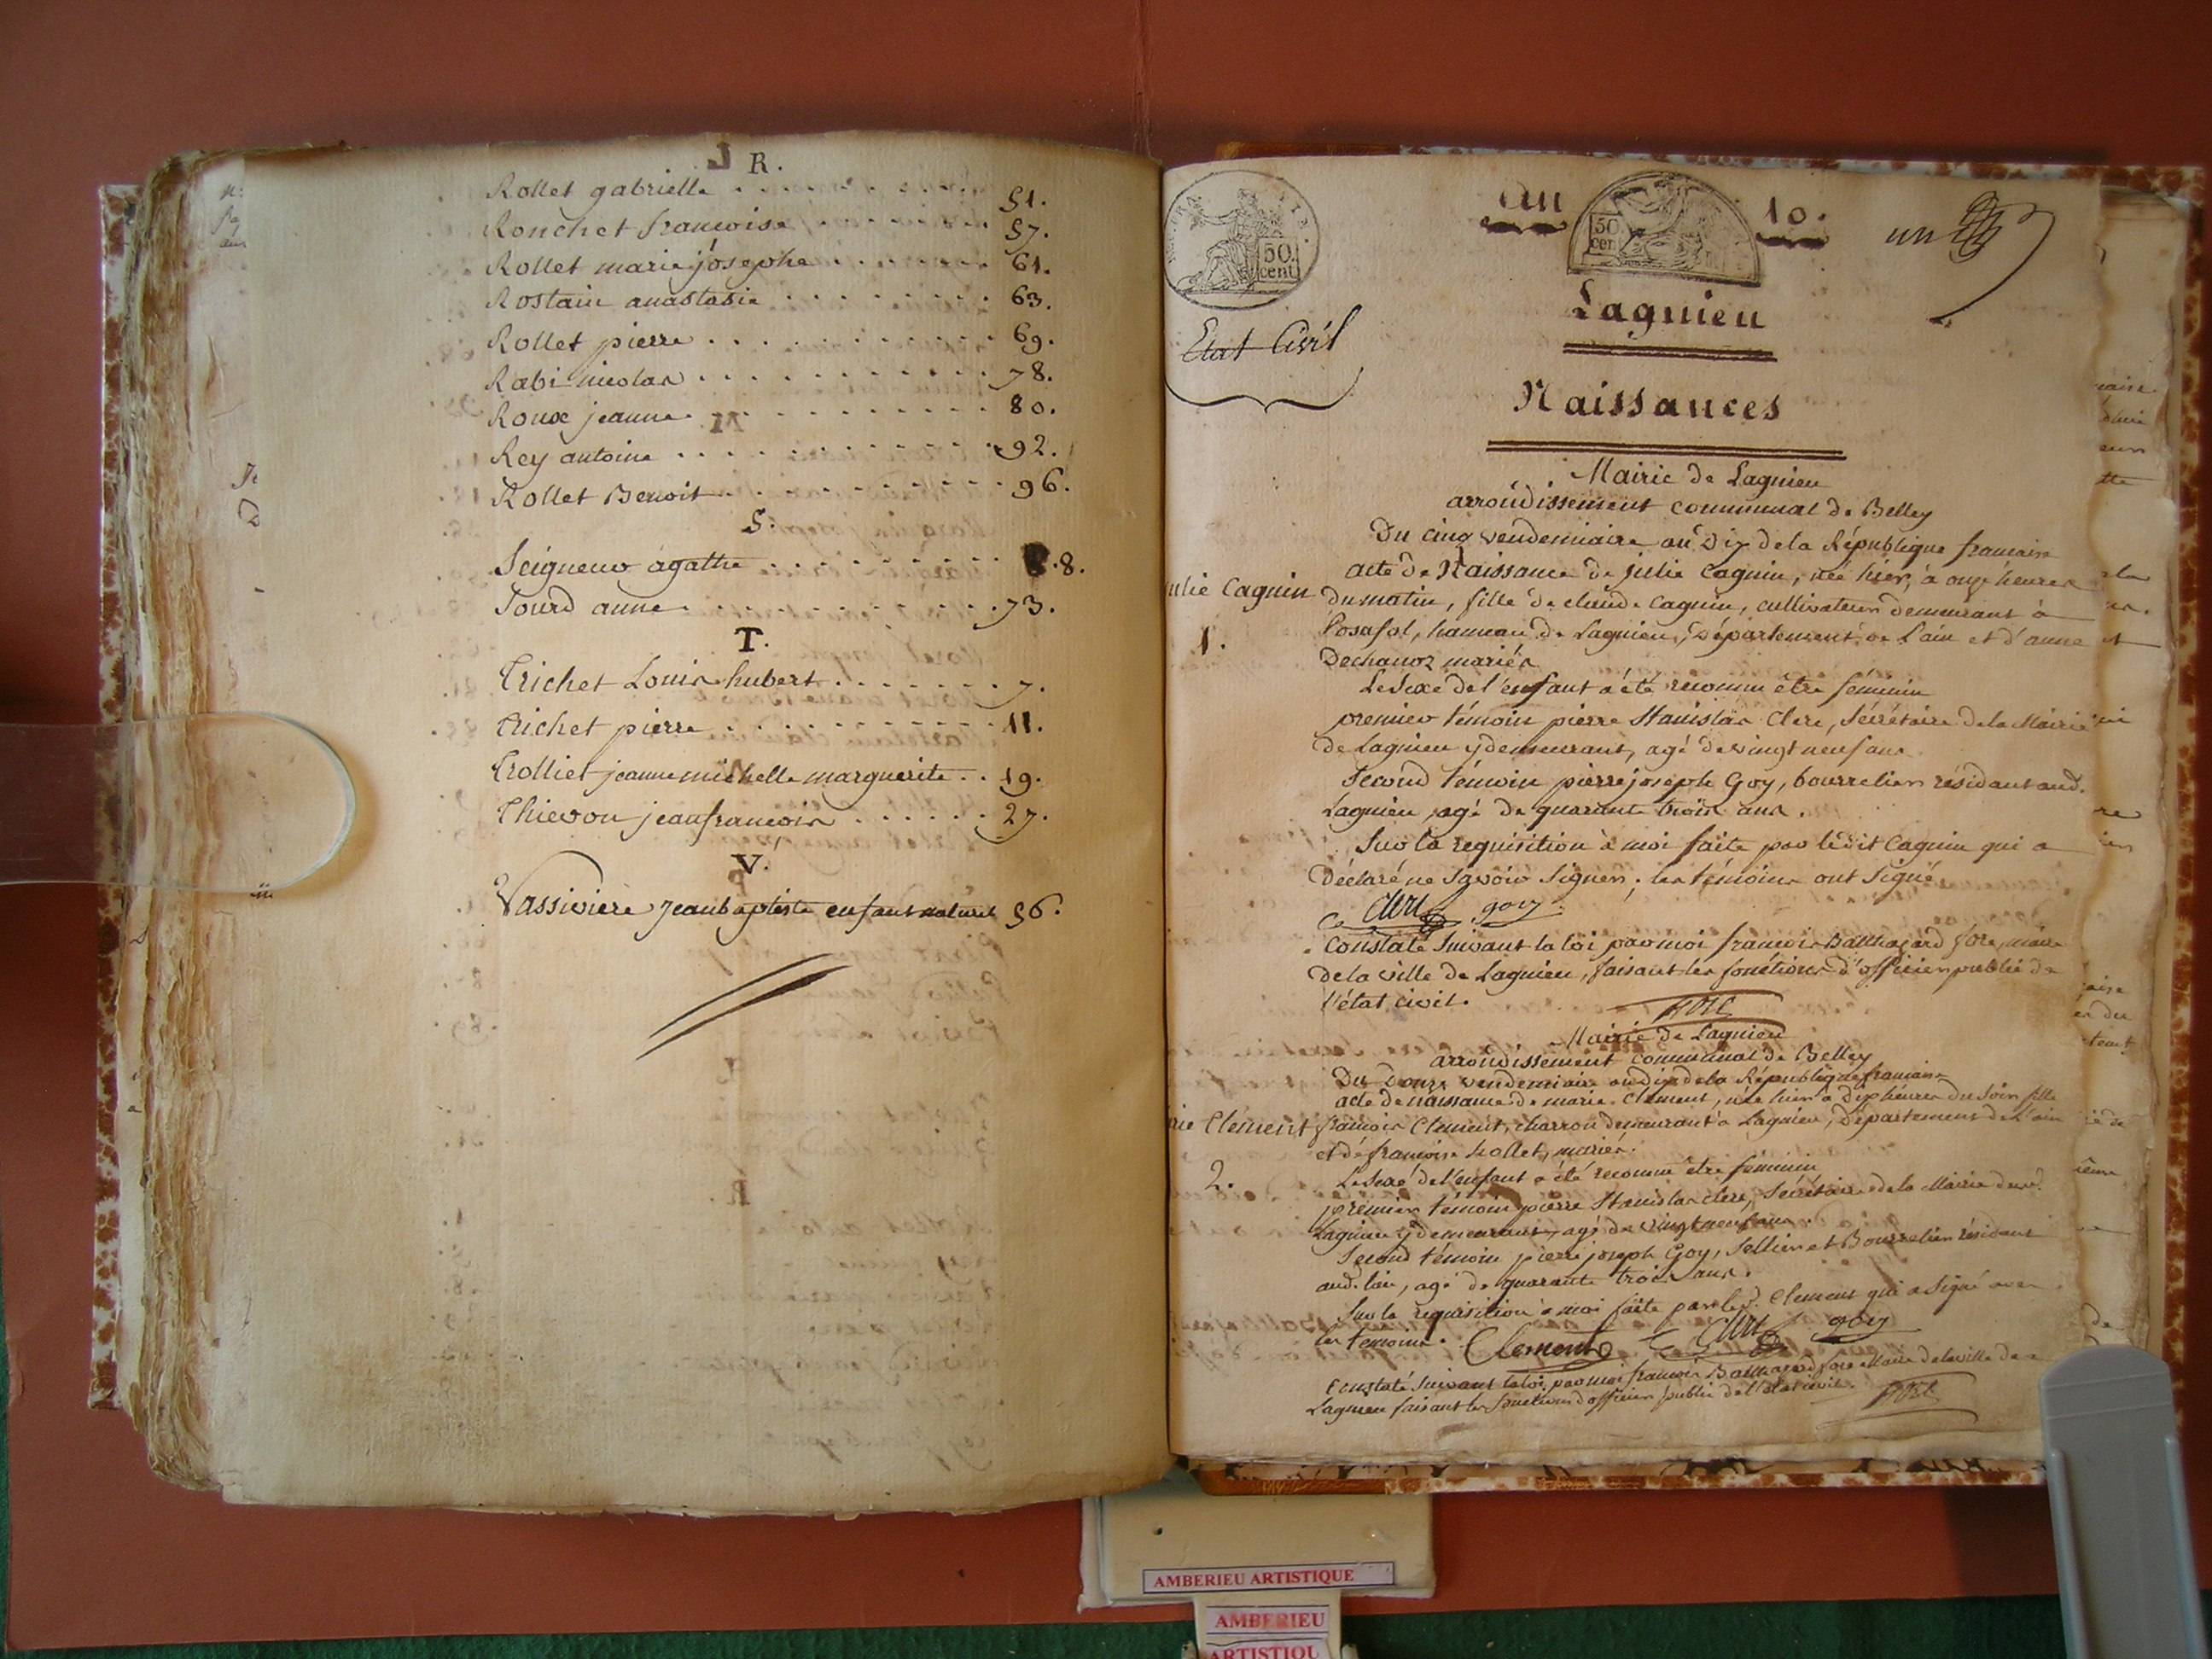 R.
Rollet gabrielle . . . . . . . . . 51.
Ronchet francoise . . . . . . . . 57.
Rollet marie josephe . . . . . . . 61.
Rostain anastasie . . . . . . . . 63.
Rollet pierre . . . . . . . . . . 69.
Rabi nicolas . . . . . . . . . . . 78.
Roux jeanne . . . . . . . . . . . 80.
Rey antoine . . . . . . . . . . . 92.
Rollet Benoit . . . . . . . . . . 96.
S.
Seigneur agathe . . . . . . . . . 8.
Sourd anne . . . . . . . . . . . 73.
T.
Trichet Louis hubert . . . . . . . 7.
Trichet pierre . . . . . . . . . . 11.
Trolliet jeanne michelle marguerite . . 19.
Thievon jean francois . . . . . . 27.
V.
Vassiviere Jean baptiste enfant naturel 56.
an 10.
50 cent.
50 cen
un
Etat Civil
Lagnieu
Naissances
Mairie de Lagnieu
arrondissement communal de Belley
Du cinq vendemiaire an Dix de la République francaise
acte de Naissance de julie Cagnin, née hier, à onze heures
ulie Cagnin
du matin, fille de claude Cagnin, cultivateur demeurant à
1.
Posafol, hameau de Lagnieu, Département de L'ain et d'anne
Dechanoz mariés
Le Sexe de l'enfant a été reconnu être féminin
premier témoin pierre Stanislas Clerc, Sécrétaire de la Mairie
de Lagnieu y demeurant, agé de vingt neuf ans
Second témoin pierre joseph Goy, bourrelier résidant aud.
Lagnieu, agé de quarante trois ans.
Sur la requisition à moi faite par ledit Cagnin qui a
Déclaré ne Savoir Signer; les témoins ont Signé
Clerc goy
Constaté Suivant la loi par moi francois Balthazard fore, maire
de la ville de Lagnieu, faisant les fonctions d'officier public de
l'état civil.
fore
Mairie de Lagnieu
arrondissement communal de Belley
Du Douze vendemiaire an dix de la République francaise
acte de naissance de marie Clement, née hier à dix heures du Soir fille
rie Clément
francois Clement, charron demeurant à Lagnieu, Département de L'ain
et de francoise hollet, mariés.
2.
Le Sexe de l'enfant a été reconnu être féminin
premier témoin pierre Stanislas clerc, Sécrétaire de la Mairie dud.
Lagnieu y demeurant, agé de vingt neuf ans.
Second témoin pierre joseph Goy, Sellier et Bourrelier résidant
aud. lieu, agé de quarante trois ans.
Sur la requisition à moi faite par led. Clement qui a Signé avec
les temoins. Clement Clerc goy
Constaté Suivant la loi, par moi francois Balthazard fore Maire de la ville de
Lagnieu faisant les fonctions d'officier public de l'état civil. fore
AMBERIEU ARTISTIQUE
AMBERIEU
ARTISTIQU